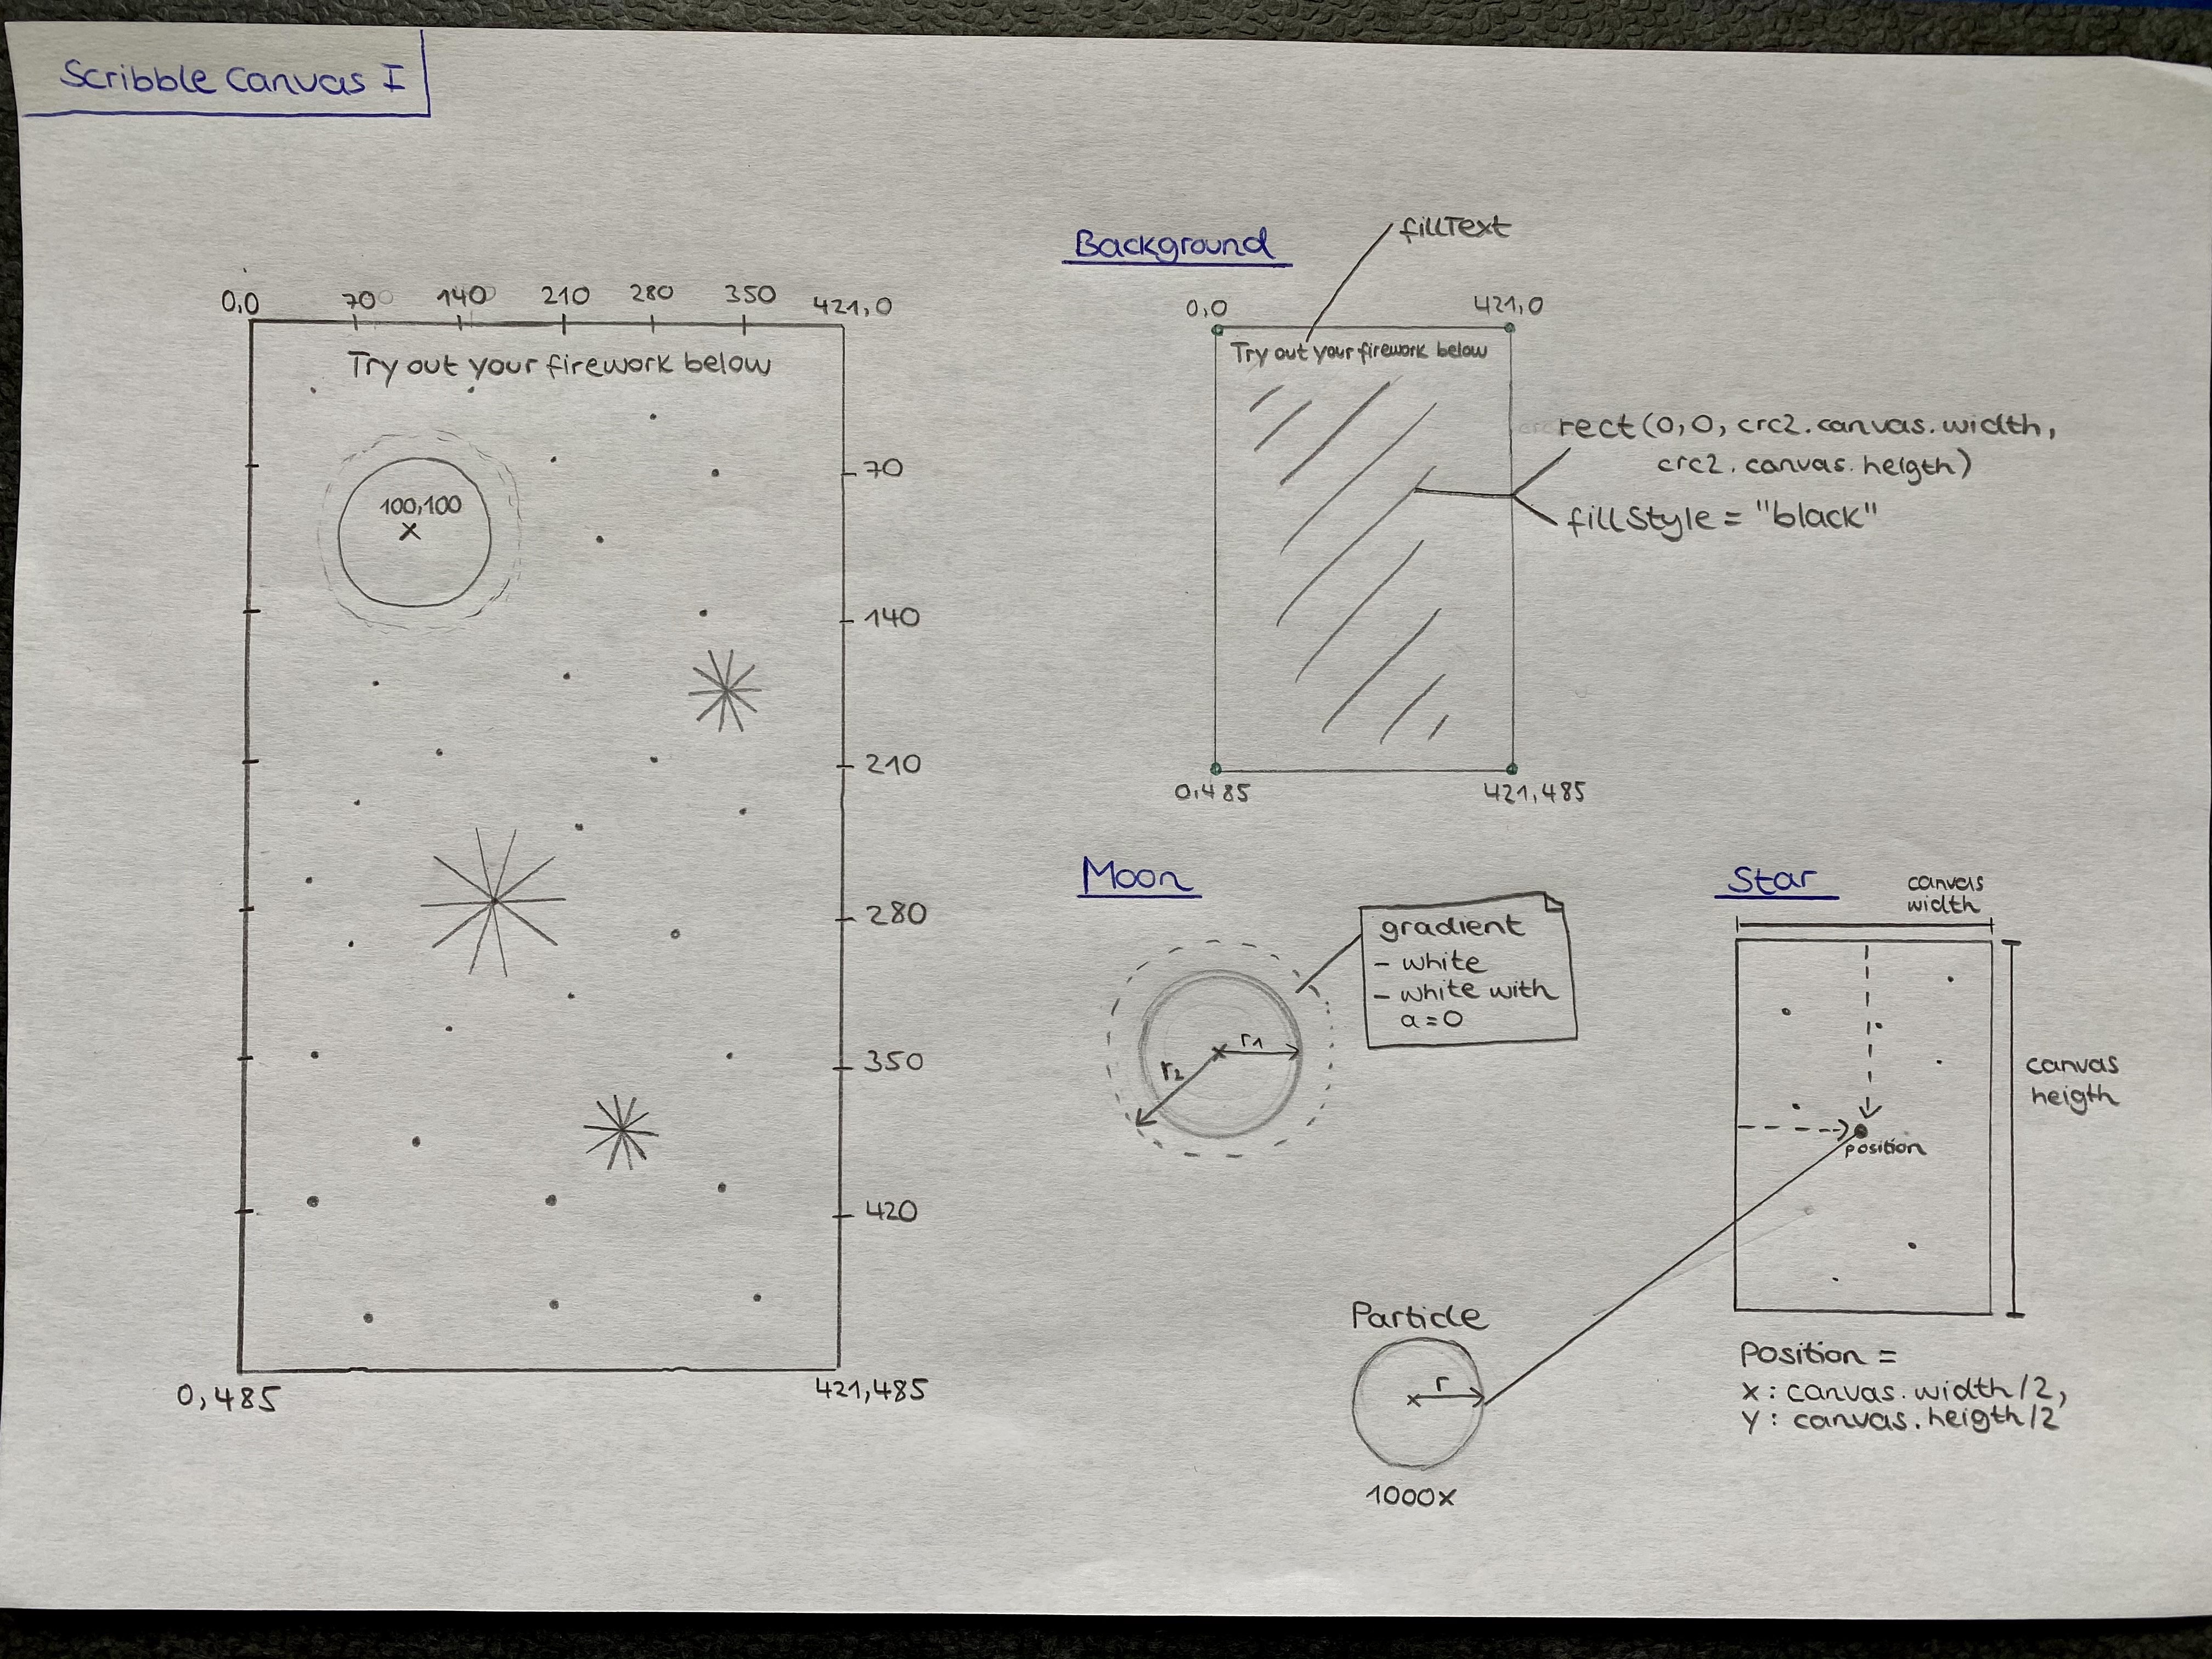 Scribble Canvas I
0,0
70
140
210
280
350
421,0
Try out your firework below
100,100
x
70
140
210
280
350
420
0,485
421,485
Background
fillText
0,0
421,0
Try out your firework below
rect(0,0, crc2.canvas.width,
crc2.canvas.heigth)
fillStyle = "black"
0,485
421,485
Moon
gradient
- white
- white with
a=0
r1
r2
Star
canvas
width
canvas
heigth
position
Particle
r
1000x
Position =
x: canvas.width/2,
y: canvas.heigth/2